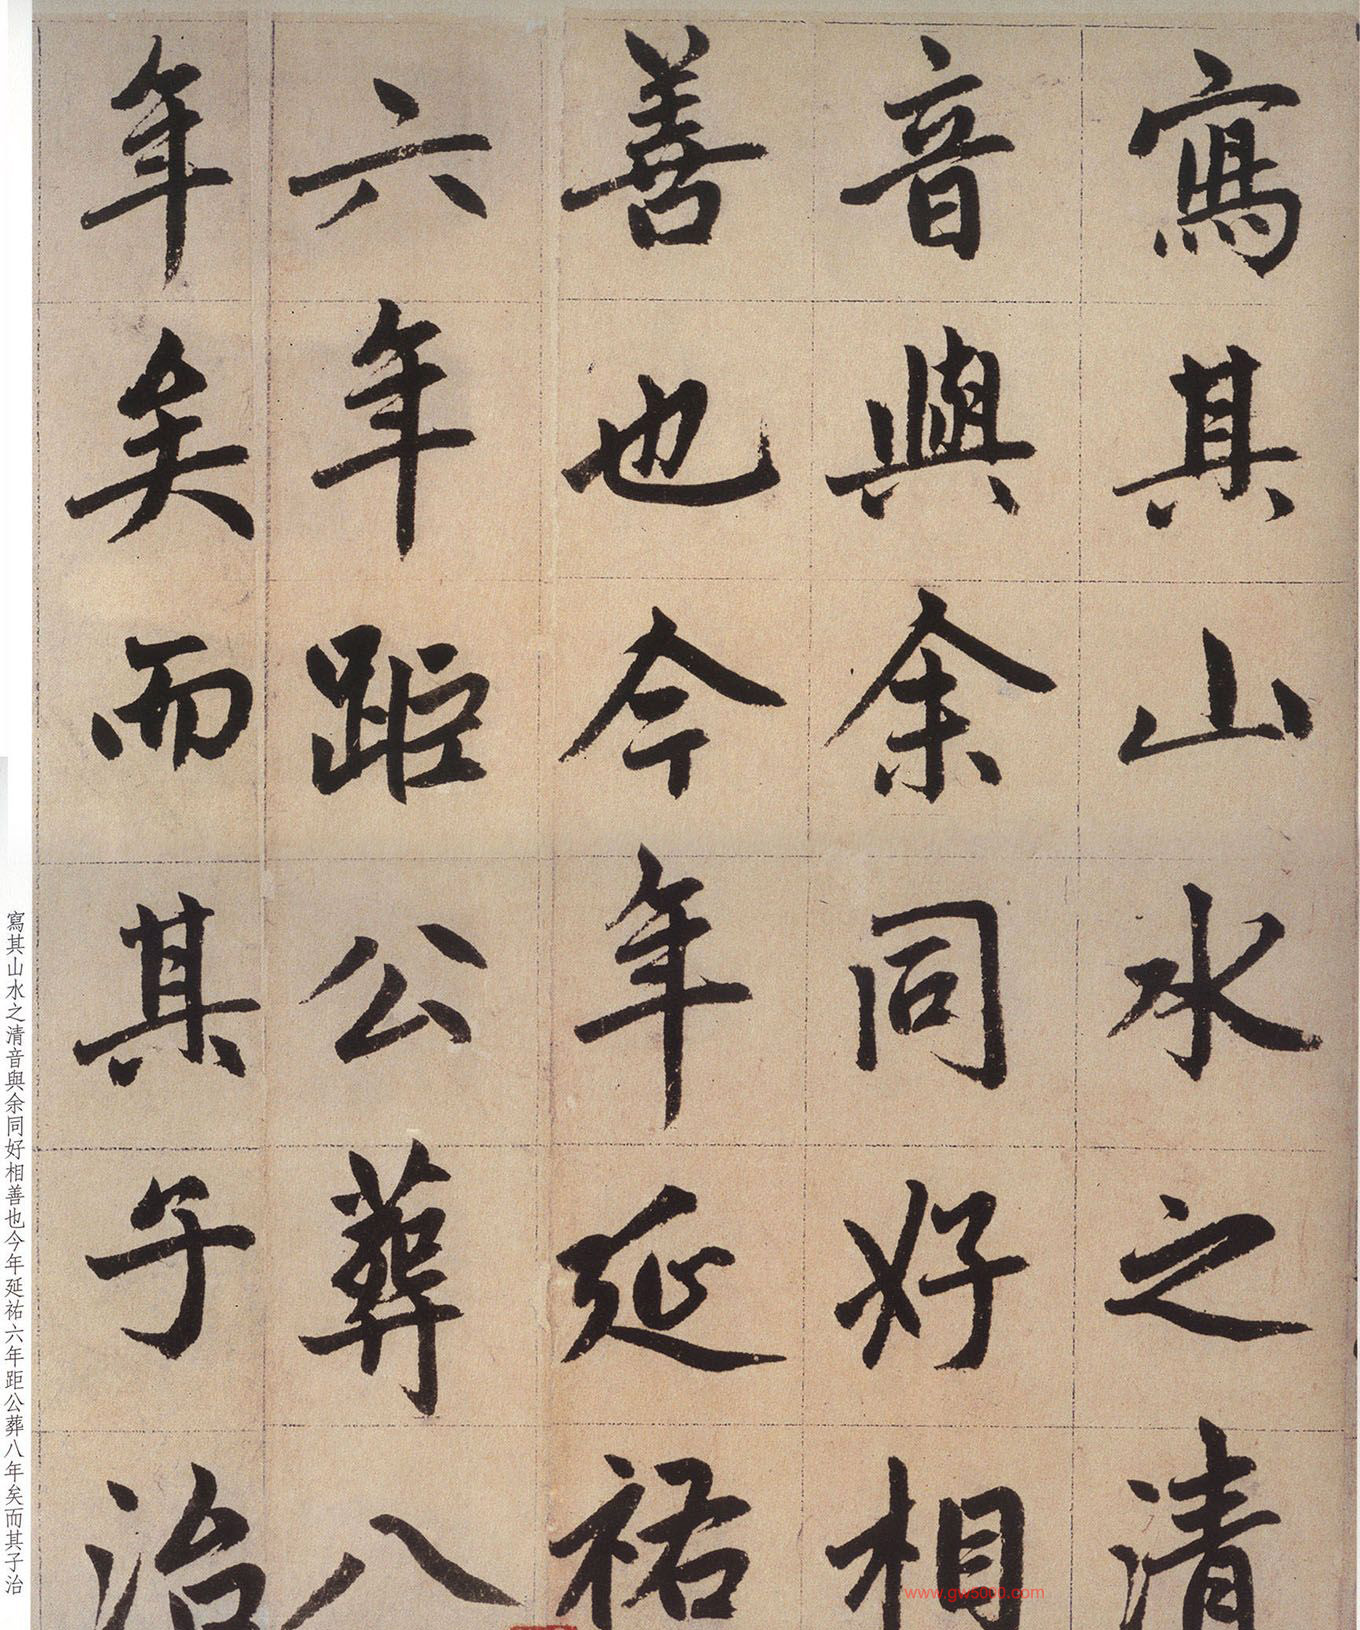 寫其山水之清
音與余同好相
善也今年延祐
六年距公葬八
年矣而其子治
寫其山水之清音與余同好相善也今年延祐六年距公葬八年矣而其子治
www.gw5000.com